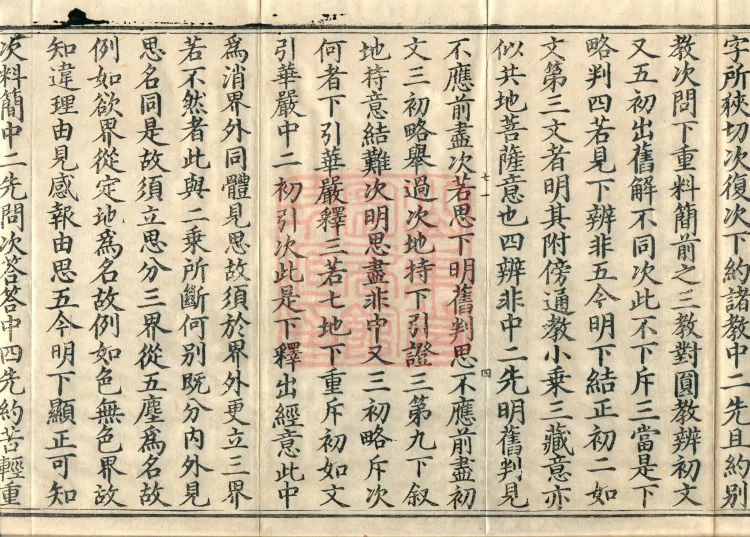 字所狹切次復次下約諸教中二先且約別
教次問下重料簡前之三教對圓教辨初文
又五初出舊解不同次此不下斥三當是下
略判四若見下辨非五今明下結正初二如
文第三文者明其附傍通教小乗三藏意亦
似共地菩薩意也四辨非中二先明舊判見
七一
四
不應前盡次若思下明舊判思不應前盡初
文三初略舉過次地持下引證三第九下叙
地持意結難次明思盡非中又三初略斥次
何者下引華嚴釋三若七地下重斥初如文
引華嚴中二初引次此是下釋出經意此中
為消界外同體見思故須於界外更立三界
若不然者此與二乗所斷何別既分內外見
思名同是故須立思分三界從五塵為名故
例如欲界從定地為名故例如色無色界故
知違理由見感報由思五今明下顯正可知
次料簡中二先問次荅荅中四先約苦輕重